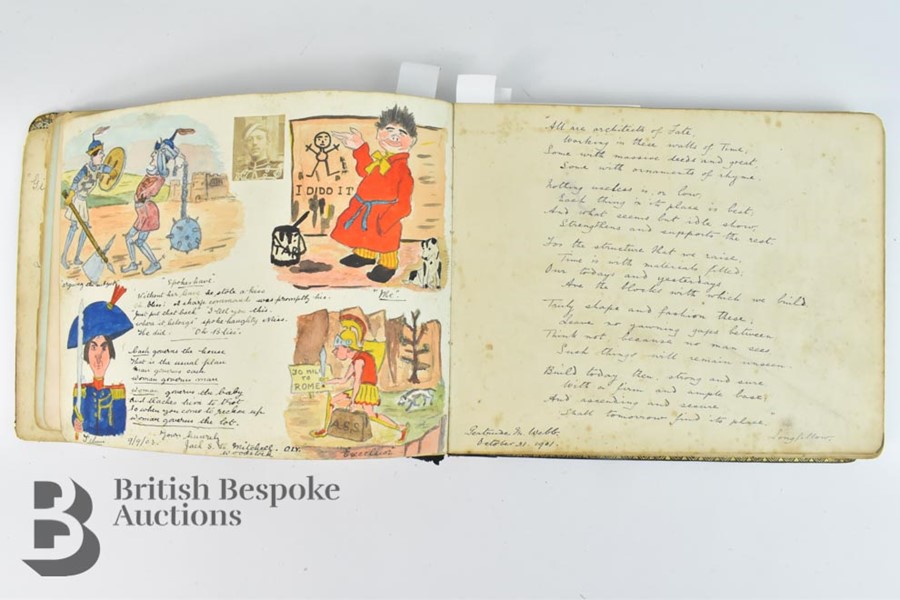 "Spokeshave".
Without her leave he stole a kiss
Oh bliss! A sharp command was promptly his.
"Just put that back" I tell you this.
where it belongs" spoke haughty Miss.
He did. "Oh B'liss".
Man governs the house
That is the usual plan
Man governs each
Woman governs man
Woman governs the baby
And teaches him to trot
So when you come to reckon up
Woman governs the lot.
Yours sincerely
9/9/03. Jack S. Mitchell.
Woolwich
I DID IT
"Me".
30 MILS
TO
ROME
A.S.S.
Excelsior
"All are architects of Fate,
Working in these walls of Time;
Some with massive deeds and great,
Some with ornaments of rhyme.
Nothing useless is, or low,
Each thing in its place is best;
And what seems but idle show,
Strengthens and supports the rest.
For the structure that we raise,
Time is with materials filled;
Our todays and yesterdays
Are the blocks with which we build.
Truly shape and fashion these;
Leave no yawning gaps between,
Think not, because no man sees
Such things will remain unseen.
Build today then, strong and sure,
With a firm and ample base;
And ascending and secure
Shall tomorrow find its place."
Longfellow.
Gertrude M. Webb.
October 31. 1901.
B
British Bespoke
Auctions